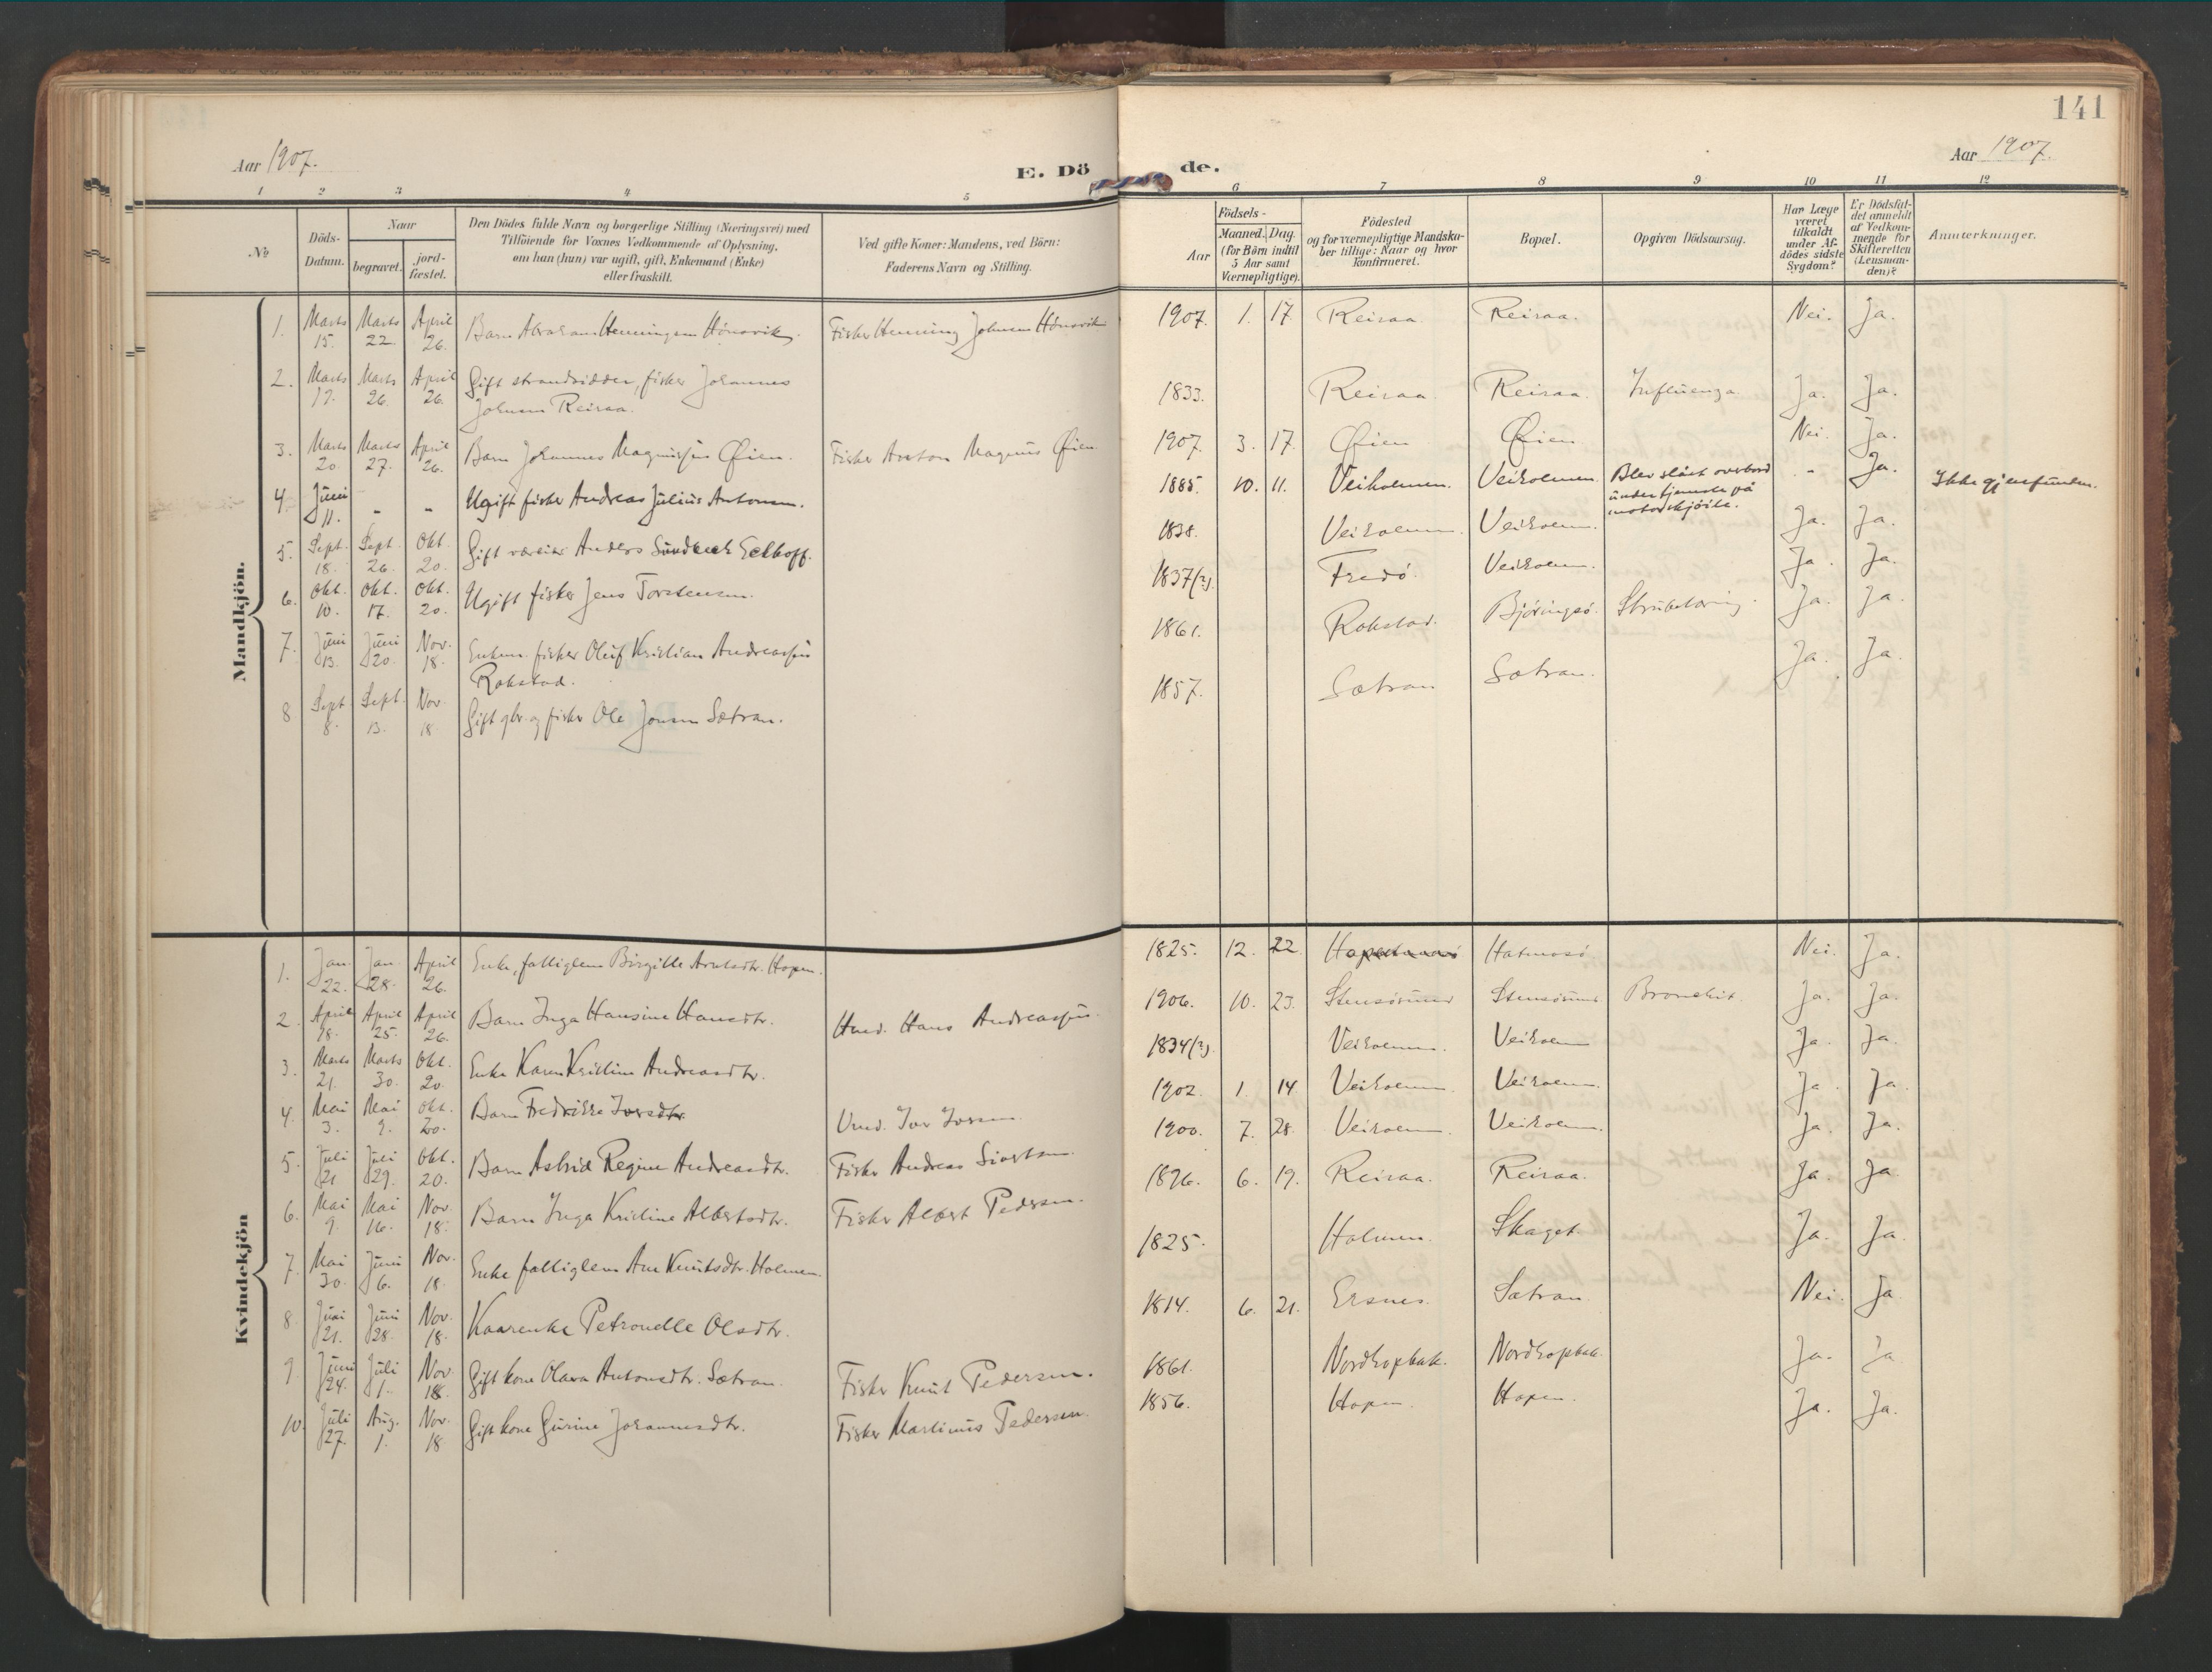 141
Aar 1907.
E. Dö
de.
Aar 1907.
1 2 3 4 5
6 7 8 9 10 11 12
No
Döds-Datum.
Naar
begravet.
jord-fæstet.
Den Dödes fulde Navn og borgerlige Stilling (Næringsvei) med
Tilföiende for Voxnes Vedkommende af Oplysning,
om han (hun) var ugift, gift, Enkemand (Enke)
eller fraskilt.
Ved gifte Koner: Mandens, ved Börn:
Faderens Navn og Stilling.
Födsels-
Aar
Maaned. Dag.
(for Börn indtil
5 Aar samt
Værnepligtige).
Födested
og for værnepligtige Mandska-
ber tillige: Naar og hvor
konfirmeret.
Bopæl.
Opgiven Dödsaarsag.
Har Læge
været
tilkaldt
under Af-
dödes sidste
Sygdom?
Er Dödsfal-
det anmeldt
af Vedkom-
mende for
Skifteretten
(Lensman-
den)?
Anmærkninger.
Mandkjön.
1. Marts 15. Marts 22. April 26. Barn Abraham Henningsen Hönsvik. Fisker Henning Johnsen Hönsvik 1907. 1. 17. Reiraa Reiraa. Nei. Ja.
2. Marts 17. Marts 26. April 26. Gift strandsidder, fisker Johannes
Johnsen Reiraa. 1833. Reiraa. Reiraa. Influenza. Ja. Ja.
3. Marts 20. Marts 27. April 26. Barn Johannes Magnusjus Øien. Fisker Anton Magnus Øien. 1907. 3. 17. Øien Øien Nei. Ja.
4. Juni 11. - - Ugift fisker Andreas Julius Antonsen. 1885. 10. 11. Veiholmen. Veiholmen. Blev slået overbord
under tjeneste på
motorskjöite. - Ja. Ikke gjenfunden.
5. Sept. 18. Sept. 26. Okt. 20. Gift væreier Anders Sundbeck Eckhoff. 1838. Veiholmen. Veiholmen. Ja. Ja.
6. Okt. 10. Okt. 17. Okt. 20. Ugift fisker Jens Torstensen. 1837(?). Fredö. Veiholmen. Ja. Ja.
7. Juni 13. Juni 20. Nov. 18. Enkem. fisker Oluf Kristian Andreasjus
Rokstad. 1861. Rokstad. Björingsö. Strubetæring. Ja. Ja.
8. Sept. 8. Sept. 13. Nov. 18. Gift gbr. og fisker Ole Jonsen Sætran. 1857. Sætran Sætran. Ja. Ja.
Kvindekjön
1. Jan. 22. Jan. 28. April 26. Enke, fattiglem Birgitte Arntsdtr. Hopen. 1825. 12. 22. Hatmosö Nei. Ja.
2. April 18. April 25. April 26. Barn Inga Hansine Hansdtr. Hans Andreasjus. 1906. 10. 23. Stensösund Stensösund Bronchit. Ja. Ja.
3. Marts 21. Marts 30. Okt. 20. Enke Karen Kristine Andreasdtr. 1834(?). Veiholmen. Veiholmen Ja. Ja.
4. Mai 3. Mai 9. Okt. 20. Barn Fredrikke Iversdtr. Iver Iversen. 1902. 1. 14. Veiholmen. Veiholmen. Ja. Ja.
5. Juli 21. Juli 29. Okt. 20. Barn Astrid Regine Andreasdtr. Fisker Andreas Sivertsen. 1900. 7. 28. Veiholmen. Veiholmen. Ja. Ja.
6. Mai 9. Mai 16. Nov. 18. Barn Inga Kristine Albertsdtr. Fisker Albert Pedersen. 1896. 6. 19. Reiraa. Reiraa. Ja. Ja.
7. Mai 30. Juni 6. Nov. 18. Enke fattiglem Ane Knutsdtr. Holmen. 1825. Holmen. Skaget. Ja. Ja.
8. Juni 21. Juni 28. Nov. 18. Kaarenke Petronelle Olsdtr. 1814. 6. 21. Ersnes. Sætran. Nei. Ja
9. Juni 24. Juli 1. Nov. 18. Gift kone Olava Antonsdtr. Sætran. Fisker Knut Pedersen. 1861. Nordhopbak. Nordhopbak. Ja. Ja
10. Juli 27. Aug. 1. Nov. 18 Gift kone Gurine Johannesdtr. Fisker Martinus Pedersen. 1856. Hopen. Hopen. Ja. Ja.